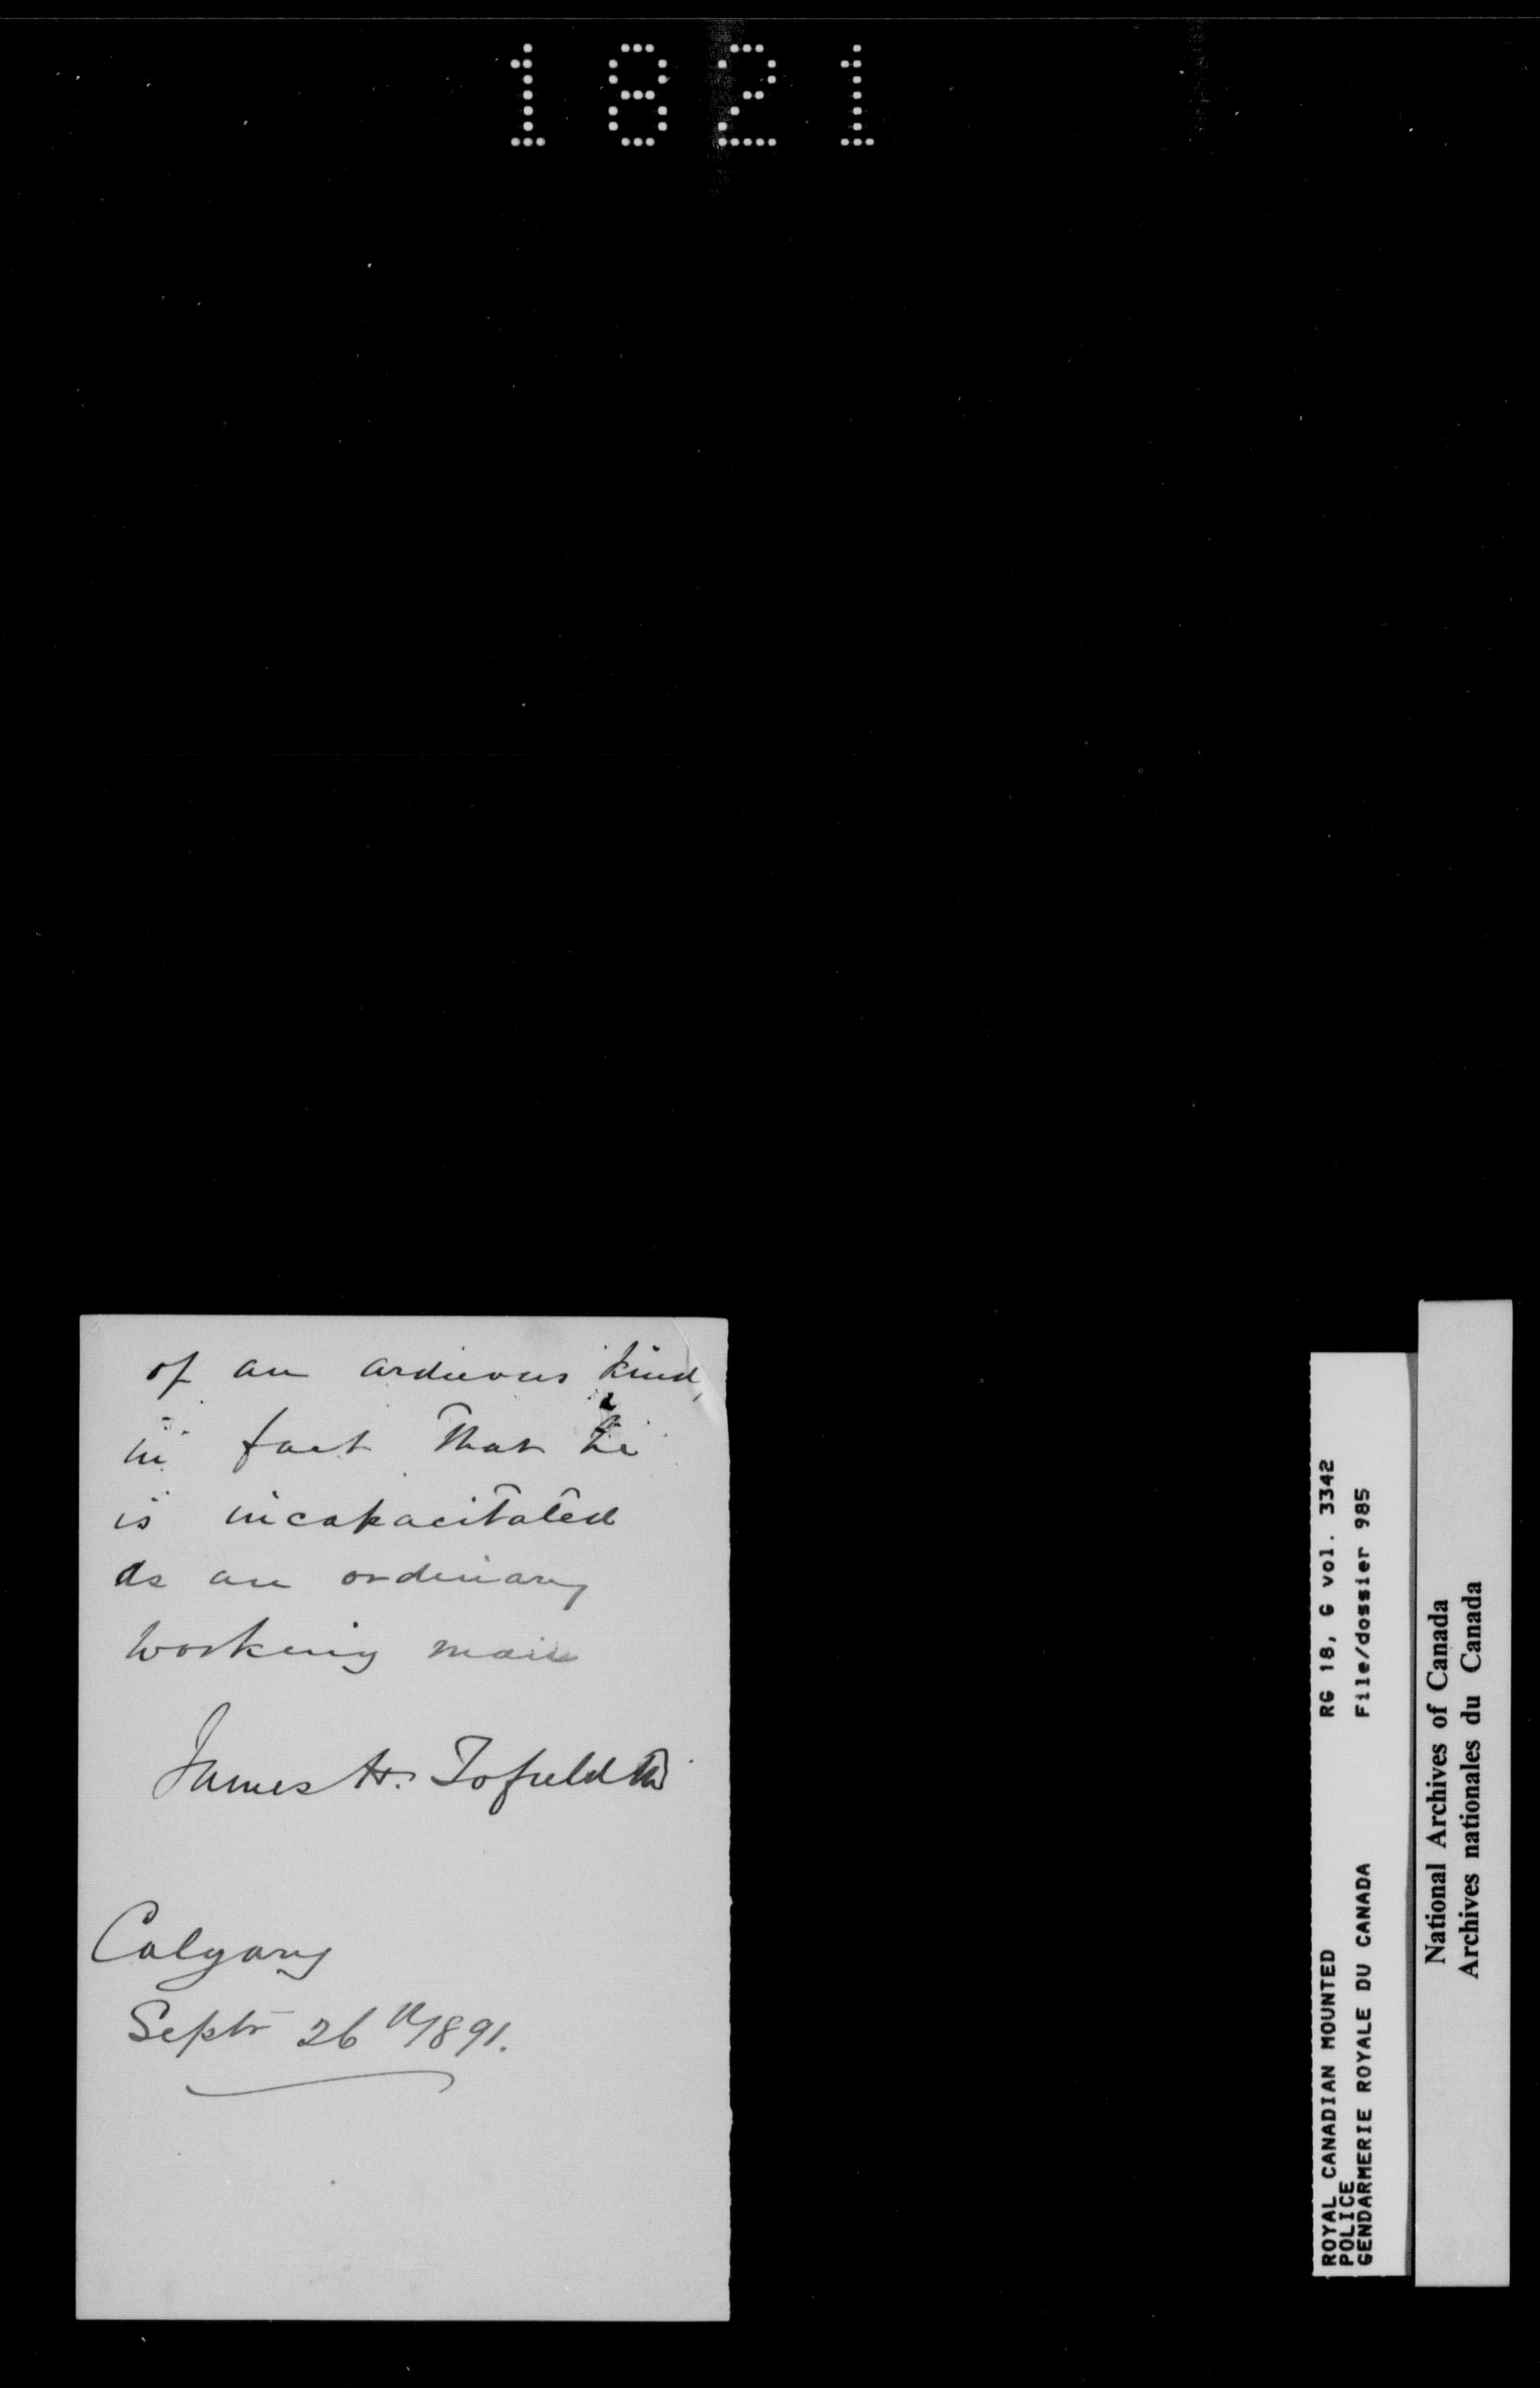 1821
of an arduous kind,
in fact that he
is incapacitated
as an ordinary
working man
James H. Tofield
Calgary
Septr 26th 1891.
ROYAL CANADIAN MOUNTED
POLICE
GENDARMERIE ROYALE DU CANADA
RG 18, G vol. 3342
File/dossier 985
National Archives of Canada
Archives nationales du Canada